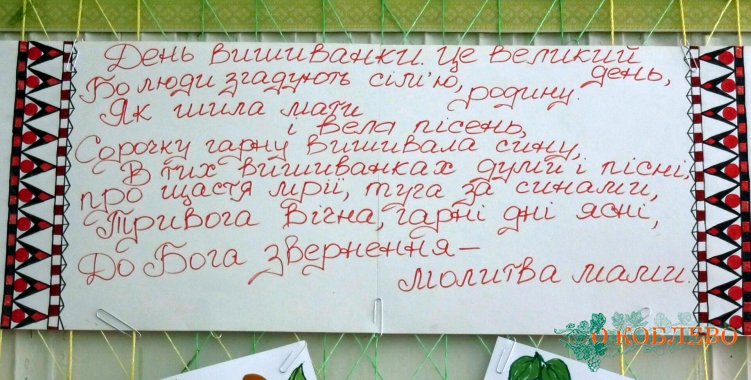 День вишиванки. Це великий
день,
Бо люди згадують сім'ю, родину.
Як шила мати
і вела пісень,
Сорочку гарну вишивала сину.
В тих вишиванках думи і пісні,
про щастя мрії, туга за синами,
Тривога вічна, гарні дні ясні,
До Бога звернення—
молитва мами.
О КОБЛЕВО